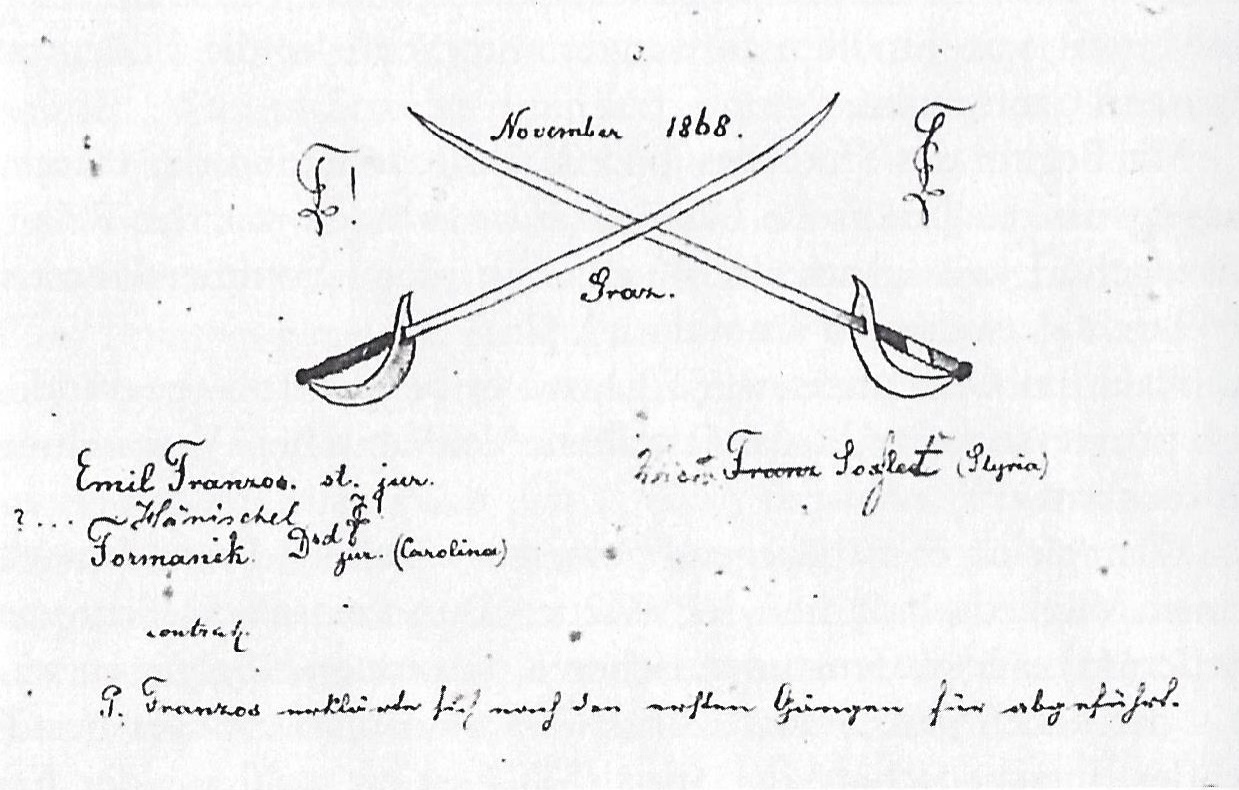 November 1868.
Graz.
Emil Franzos. st. jur.
Franz Soxlet (Styria)
? ... Hänischel
Formanik. Drd jur. (Carolina)
contrah.
P. Franzos erklärte sich nach den ersten Gängen für abgeführt.